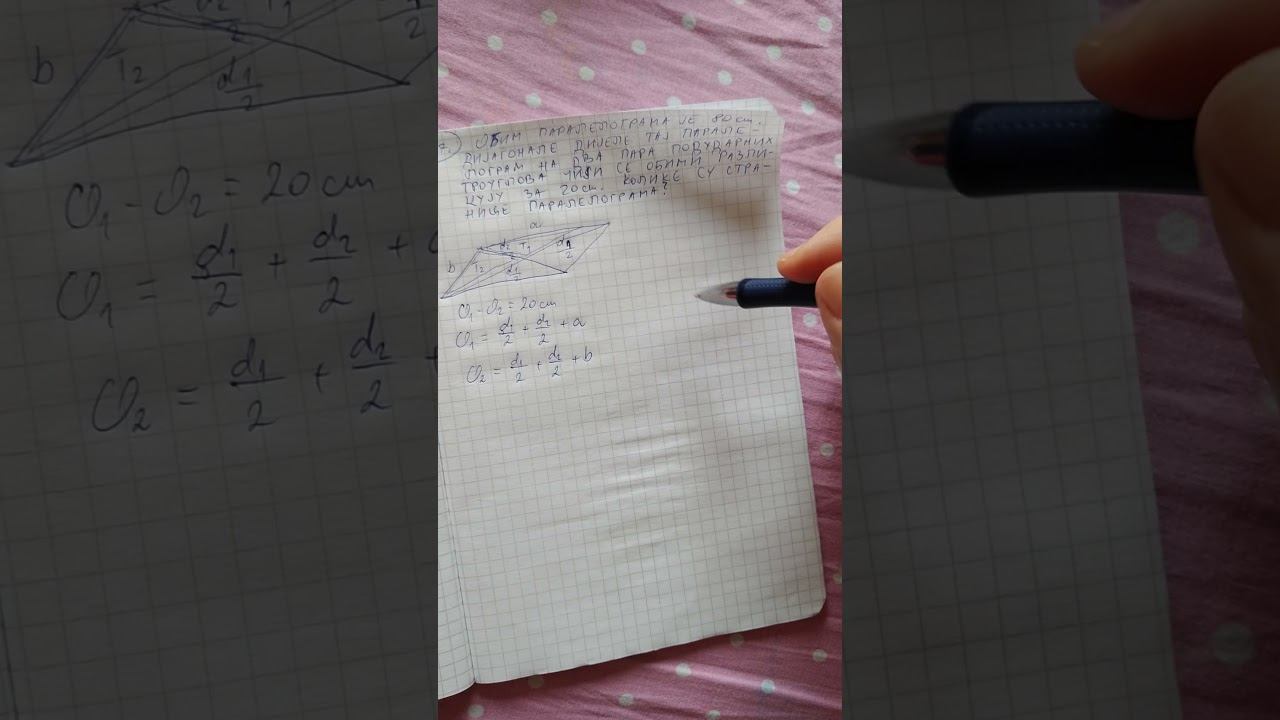 7. ОБИМ ПАРАЛЕЛОГРАМА ЈЕ 80 cm.
ДИЈАГОНАЛЕ ДИЈЕЛЕ ТАЈ ПАРАЛЕ-
ЛОГРАМ НА ДВА ПАРА ПОДУДАРНИХ
ТРОУГЛОВА ЧИЈИ СЕ ОБИМИ РАЗЛИ-
КУЈУ ЗА 20 cm. КОЛИКЕ СУ СТРА-
НИЦЕ ПАРАЛЕЛОГРАМА?
a
b T₂ d₂/2 T₁ d₁/2 d₁/2
O₁ - O₂ = 20 cm
O₁ = d₁/2 + d₂/2 + a
O₂ = d₁/2 + d₂/2 + b